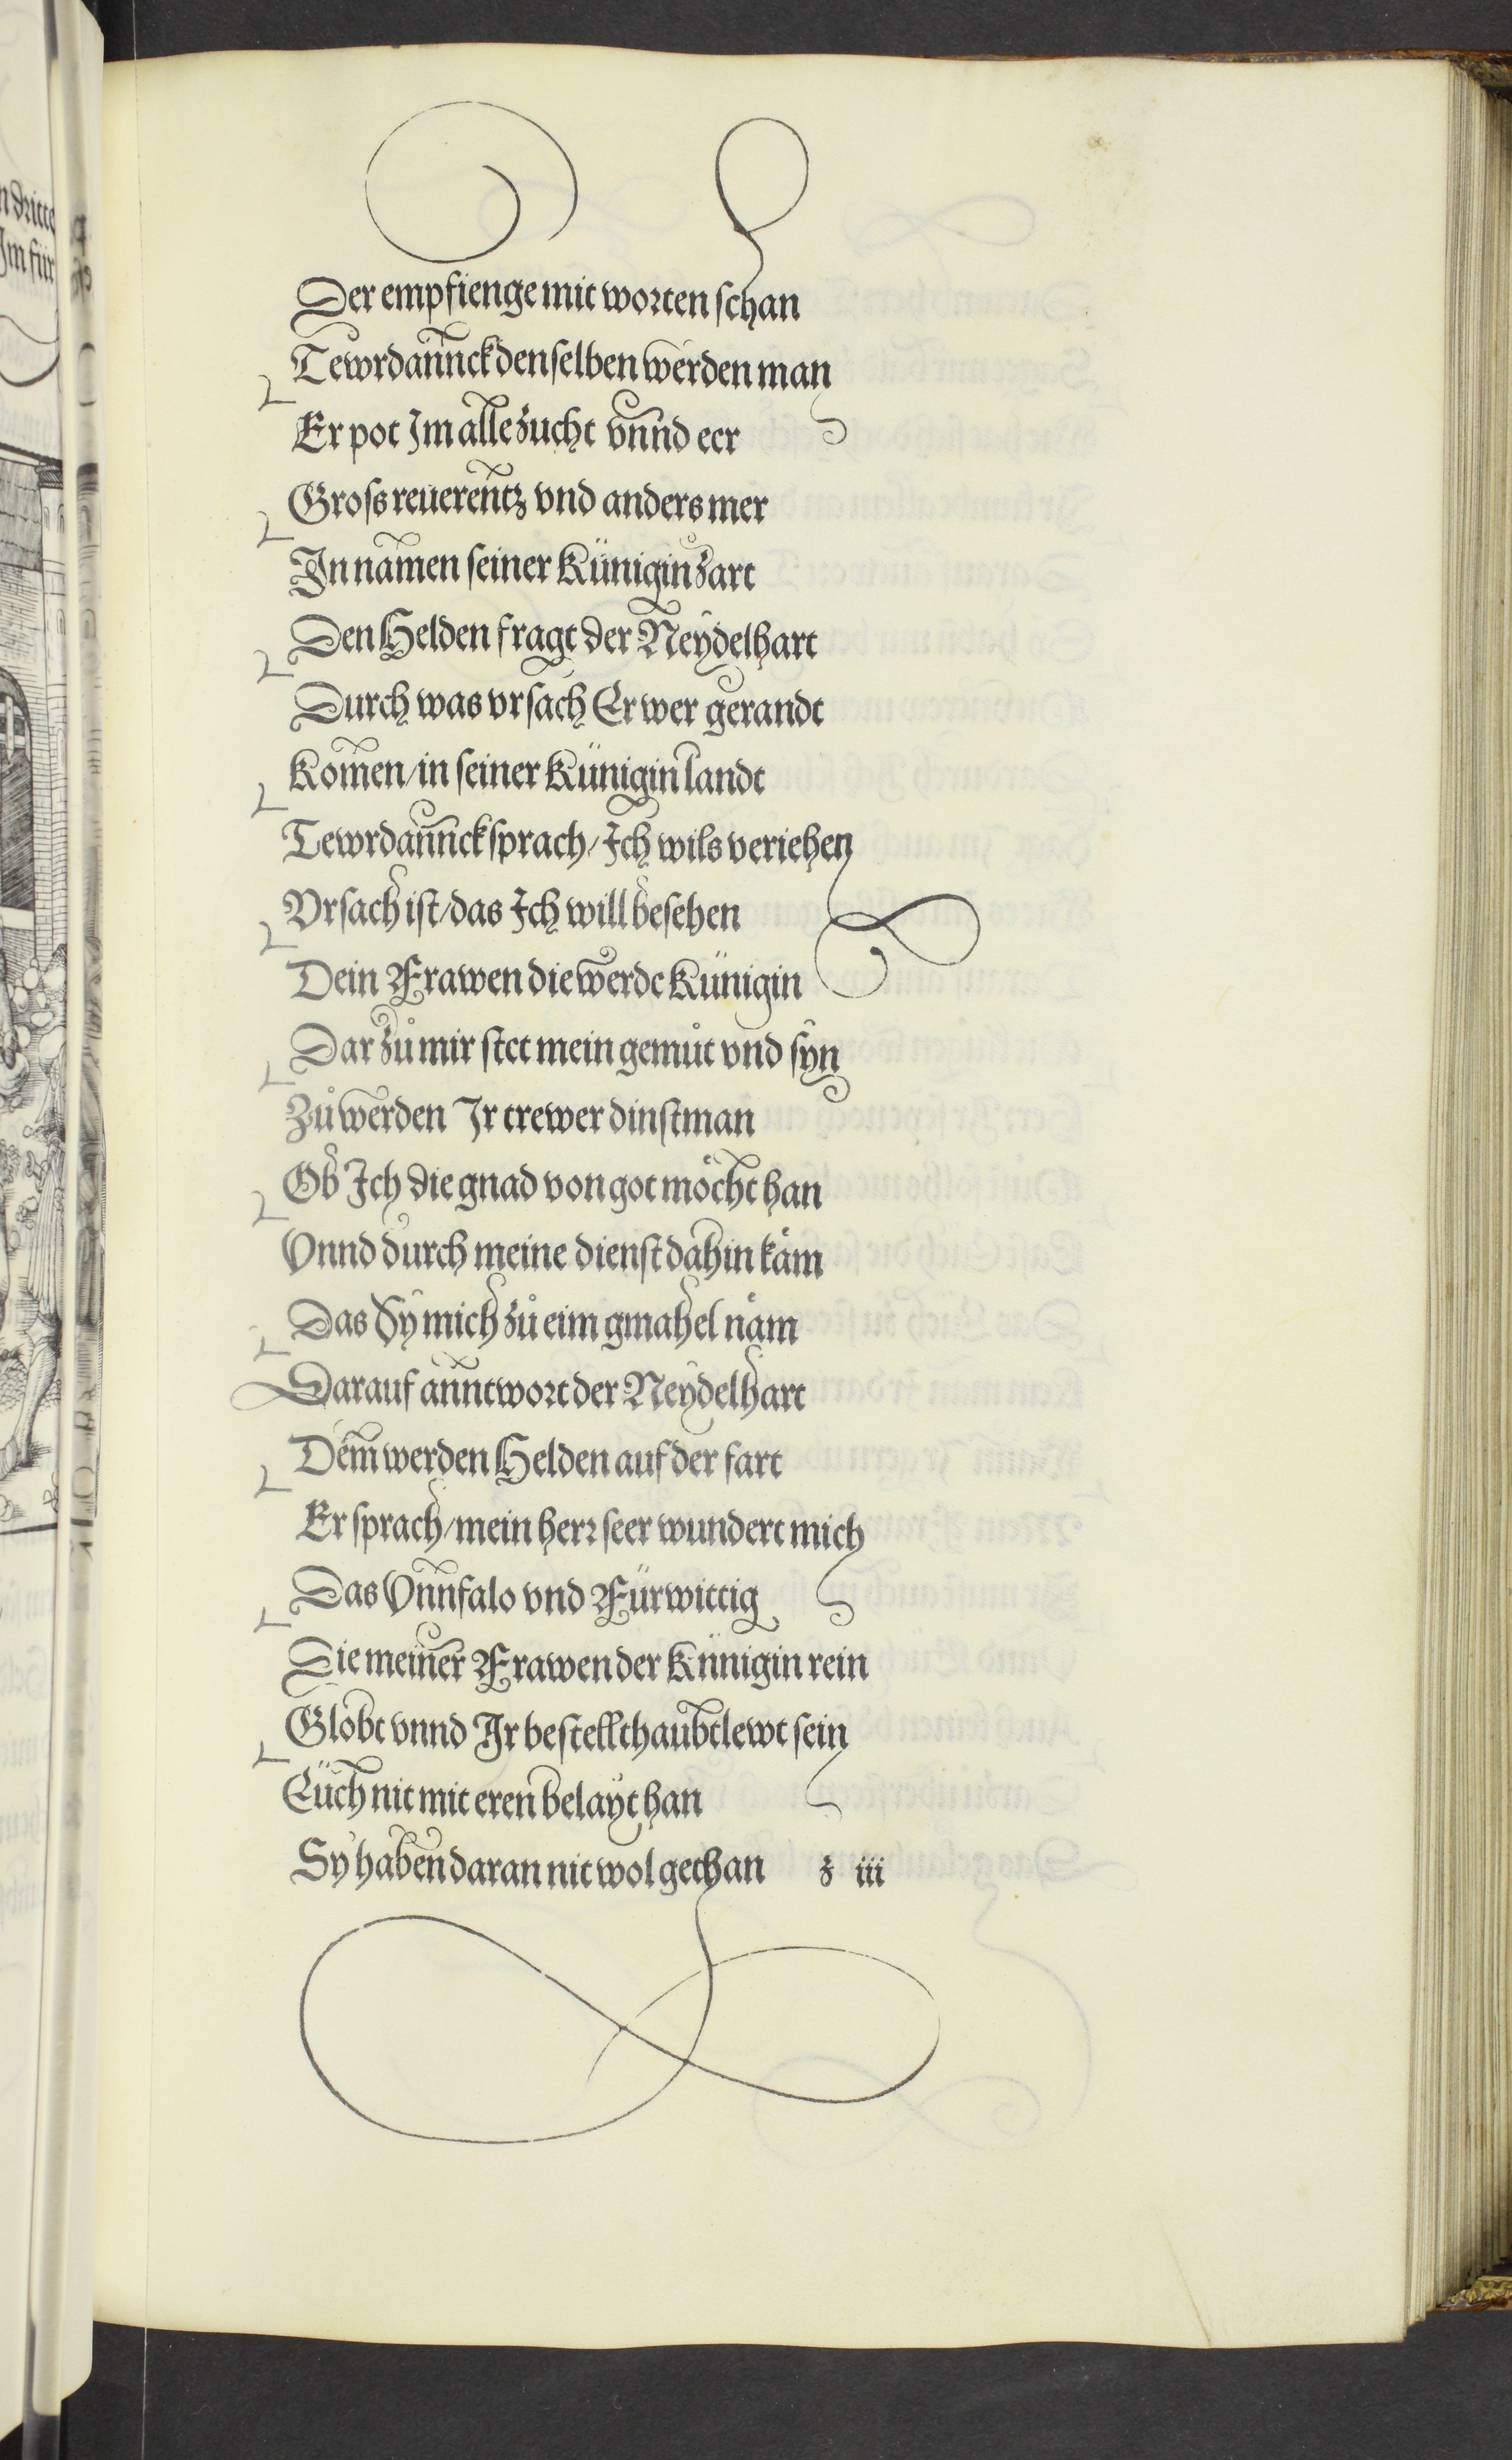 Der empfienge mit worten schan
Tewrdannck denselben werden man
Er pot Im alle zucht vnnd eer
Gross reuerentz vnd anders mer
In namen seiner Künigin zart
Den Helden fragt der Neydelhart
Durch was vrsach Er wer gerandt
Komen/in seiner Künigin landt
Tewrdannck sprach/Ich wils veriehen
Vrsach ist/das Ich will besehen
Dein Frawen die werde Künigin
Dar zů mir stet mein gemůt vnd syn
Zů werden Ir trewer dinstman
Ob Ich die gnad von got möcht han
Vnnd durch meine dienst dahin käm
Das Sy mich zů eim gmahel näm
Darauf anntwort der Neydelhart
Dem werden Helden auf der fart
Er sprach/mein herr seer wundert mich
Das Vnnfalo vnd Fürwittig
Die meiner Frawen der Künigin rein
Globt vnnd Ir bestellt haubtlewt sein
Eüch nit mit eren belayt han
Sy haben daran nit wol gethan z iii